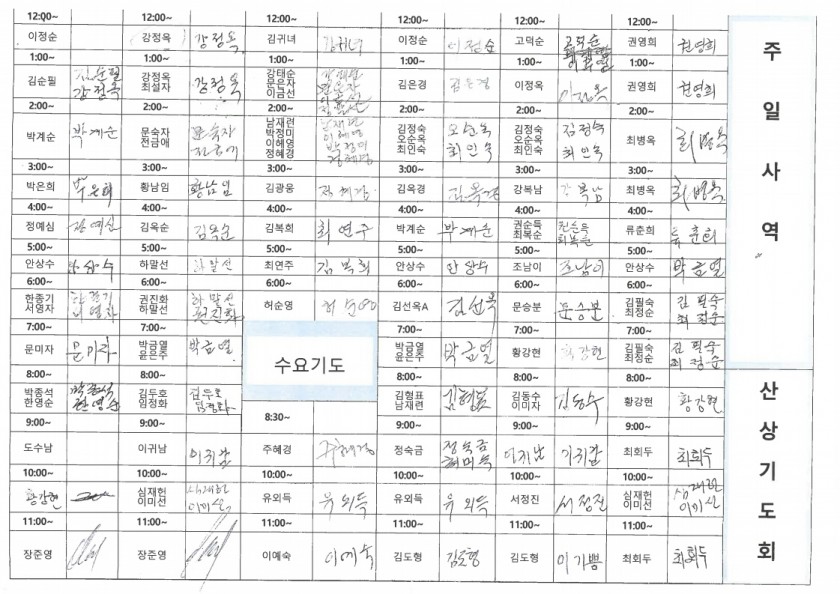 12:00~ 12:00~ 12:00~ 12:00~ 12:00~ 12:00~
이정순 강정옥 강정옥 김귀녀 김귀녀 이정순 이정순 고덕순 고덕순 권영희 권영희
1:00~ 1:00~ 1:00~ 1:00~ 1:00~ 1:00~
김순필 김순필 강정옥 강정옥 강태순 김은경 김은경 이정옥 이정옥 권영희 권영희
강정옥 최설자 문은자 문은자
이금선
2:00~ 2:00~ 2:00~ 2:00~ 2:00~ 2:00~
박계순 박계순 문숙자 문숙자 남재련 남재련 김정숙 오순옥 김정숙 김정숙 최병옥 최병옥
전금애 전금애 박정미 이해영 오순옥 최인숙 오순옥 최인숙
이해영 박정미 최인숙 최인숙
정혜경 정혜경
3:00~ 3:00~ 3:00~ 3:00~ 3:00~ 3:00~
박은희 박은희 황남임 황남임 김광웅 김옥경 김옥경 강복남 강복남 최병옥 최병옥
4:00~ 4:00~ 4:00~ 4:00~ 4:00~ 4:00~
정예심 김옥순 김옥순 김복희 최연주 박계순 박계순 권순득 권순득 류춘희 류춘희
최복순 최복순
5:00~ 5:00~ 5:00~ 5:00~ 5:00~ 5:00~
안상수 안상수 하말선 하말선 최연주 김복희 안상수 안상수 조남이 조남이 안상수 박금열
6:00~ 6:00~ 6:00~ 6:00~ 6:00~ 6:00~
한종기 한종기 권진화 하말선 허순영 허순영 김선옥A 김선옥 문승분 문승분 김필숙 김필숙
서영자 서영자 하말선 권진화 최정순 최정순
7:00~ 7:00~ 7:00~ 7:00~ 7:00~
문미자 문미자 박금열 박금열 수요기도 박금열 박금열 황강현 황강현 김필숙 김필숙
윤은주 윤은주 최정순 최정순
8:00~ 8:00~ 8:00~ 8:00~ 8:00~
박종석 박종석 김두호 김두호 김형표 김형표 김동수 김동수 황강현 황강현
한영순 한영순 임정화 임정화 남재련 이미자
9:00~ 9:00~ 8:30~ 9:00~ 9:00~ 9:00~
도수남 이귀남 이귀남 주혜경 주혜경 정숙금 정숙금 이귀남 최회두 최회두
10:00~ 10:00~ 10:00~ 10:00~ 10:00~ 10:00~
황강현 심재헌 심재헌 유외득 유외득 유외득 유외득 서정진 서정진 심재헌 심재헌
이미선 이미선 이미선 이미선
11:00~ 11:00~ 11:00~ 11:00~ 11:00~ 11:00~
장준영 장준영 이예숙 이예숙 김도형 김도형 김도형 이기쁨 최회두 최회두
주일사역
산상기도회